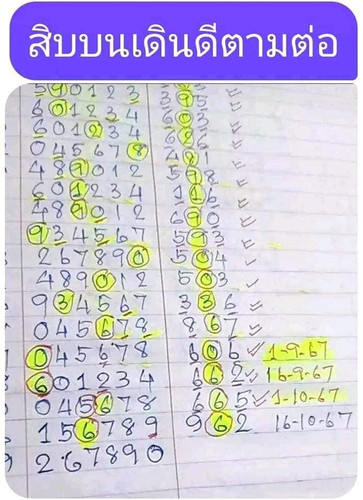 สิบบนเดินดีตามต่อ
5 9 0 1 2 3 3 9 5
6 0 1 2 3 4
6 0 1 2 3 4
0 4 5 6 7 8
4 8 9 0 1 2 5 9 8
6 0 1 2 3 4 1 1 6
4 8 9 0 1 2 6 9 0
9 3 4 5 6 7 5 9 3
2 6 7 8 9 0 5 0 4
4 8 9 0 1 2 5 0 3
9 3 4 5 6 7 3 3 6
0 4 5 6 7 8 8 6 7
0 4 5 6 7 8 6 0 6 1-9-67
6 0 1 2 3 4 6 6 2 16-9-67
0 4 5 6 7 8 6 6 5 1-10-67
1 5 6 7 8 9 9 6 2 16-10-67
2 6 7 8 9 0